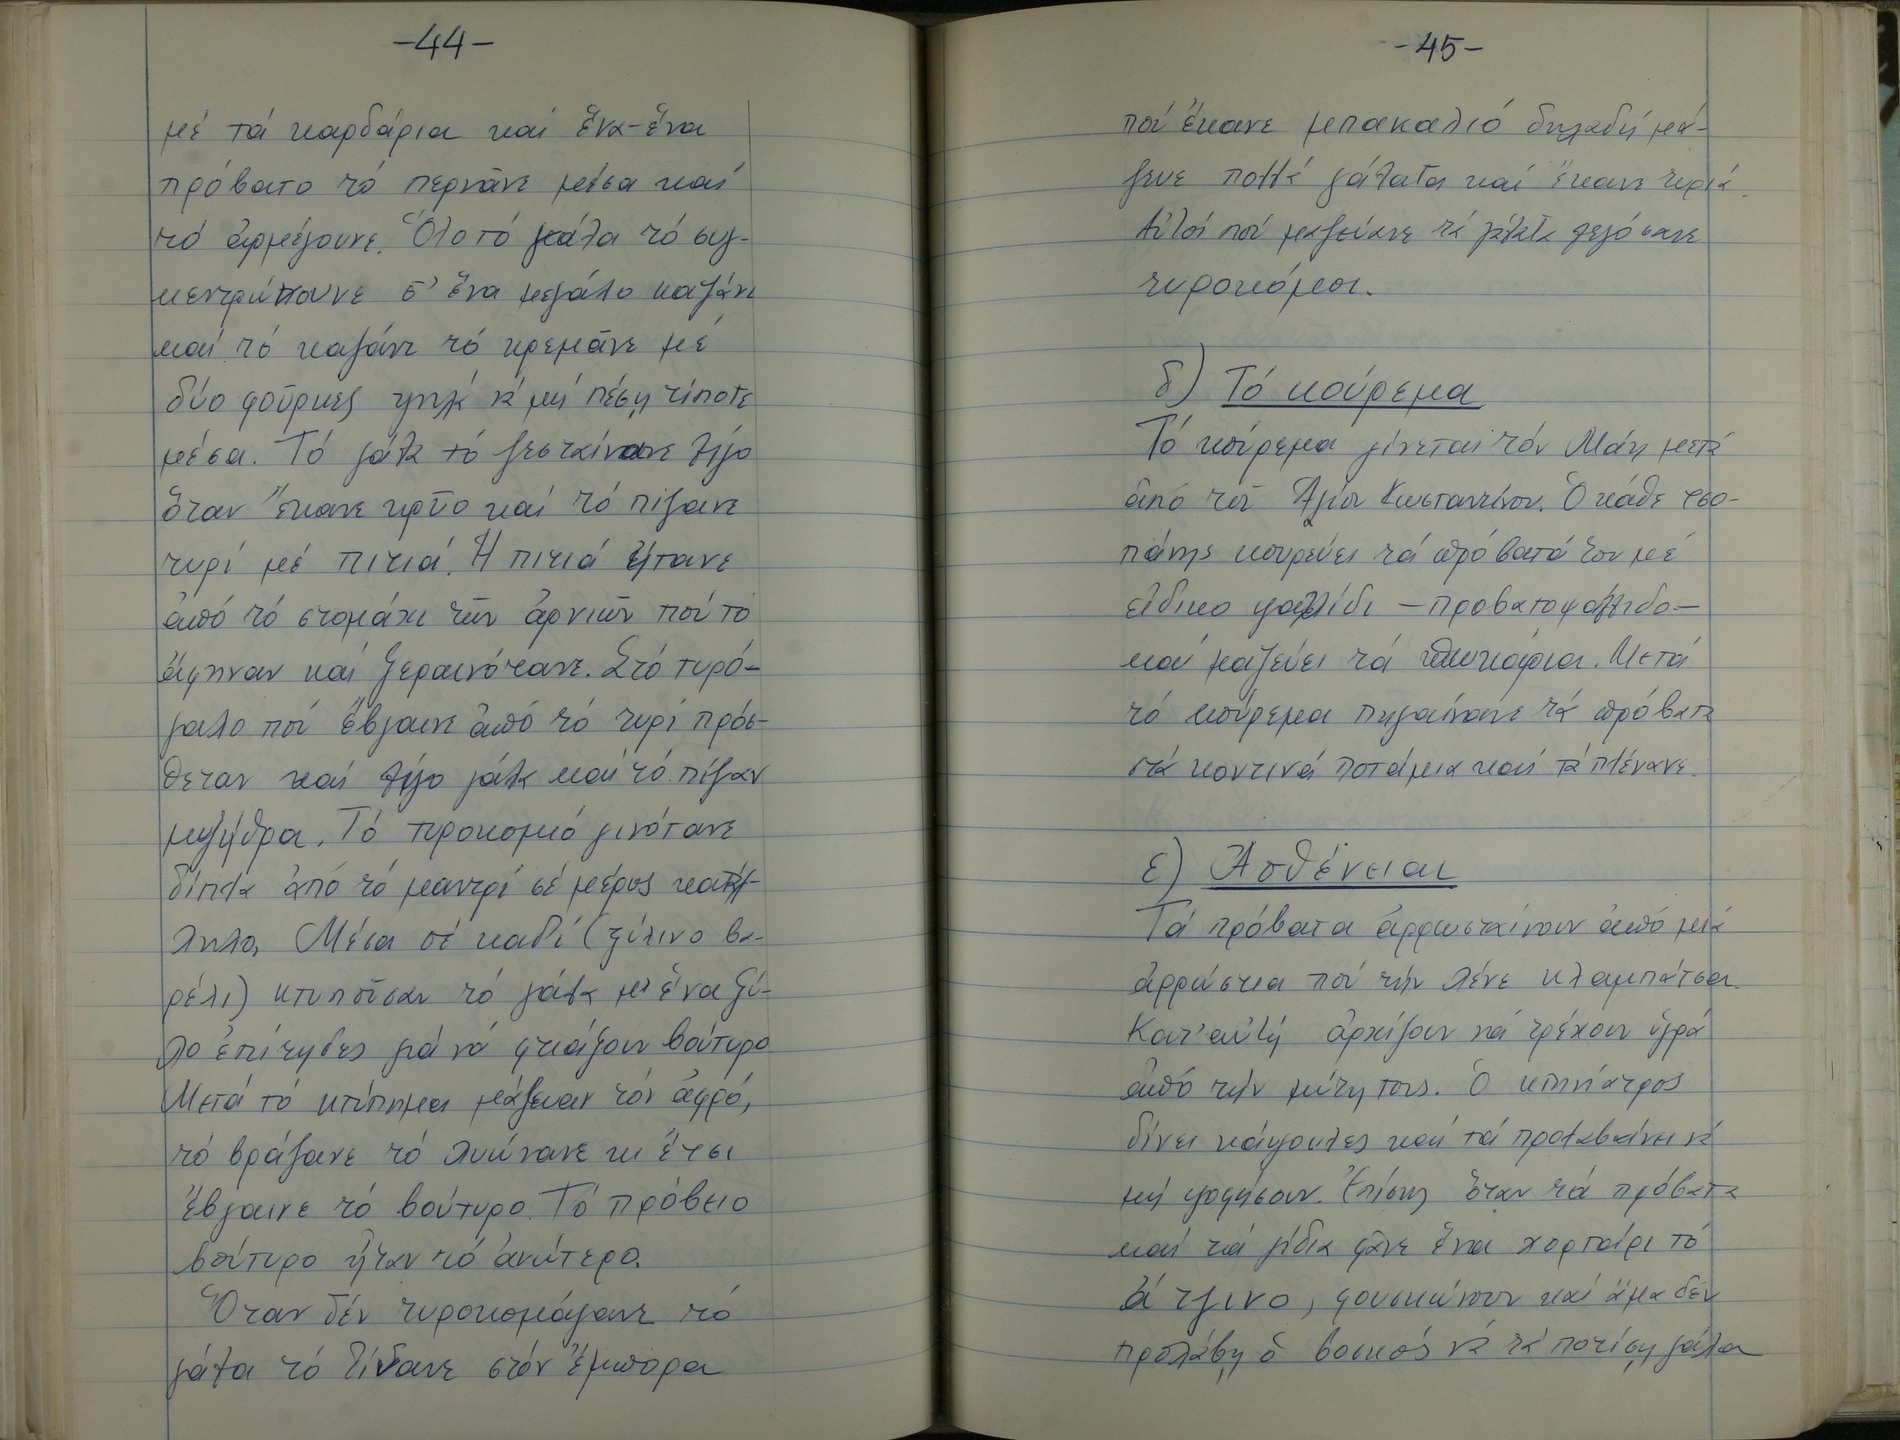 -44-
μέ τά καρδάρια καί ἕνα-ἕνα
πρόβατο τό περνᾶνε μέσα καί
τό ἀρμέγουνε. Ὅλο τό γάλα τό συγ-
κεντρώνουνε σ' ἕνα μεγάλο καζάνι
καί τό καζάνι τό κρεμᾶνε μέ
δύο φοῦρκες ψηλά νά μή πέση τίποτε
μέσα. Τό γάλα τό ζεσταίνανε λίγο
ὅταν ἔκανε κρῦο καί τό πίζανε
τυρί μέ πιτιά. Ἡ πιτιά ἤτανε
ἀπό τό στομάχι τῶν ἀρνιῶν πού τό
ἄφηναν καί ξεραινότανε. Στό τυρό-
γαλο πού ἔβγαινε ἀπό τό τυρί πρόσ-
θεταν καί λίγο γάλα καί τό πίζαν
μυζήθρα. Τό τυροκομιό γινότανε
δίπλα ἀπό τό μαντρί σέ μέρος κατάλ-
ληλο. Μέσα σέ καδί (ξύλινο βα-
ρέλι) κτυποῦσαν τό γάλα μέ ἕνα ξύ-
λο ἐπίτηδες γιά νά φτιάξουν βούτυρο
Μετά τό κτύπημα μάζευαν τόν ἀφρό,
τό βράζανε τό λυώνανε κι ἔτσι
ἔβγαινε τό βούτυρο. Τό πρόβειο
βούτυρο ἦταν τό ἀνώτερο.
Ὅταν δέν τυροκομάγανε τό
γάλα τό δίνανε στόν ἔμπορα
-45-
πού ἔκανε μπακαλιό δηλαδή μά-
ζευε πολλά γάλατα καί ἔκανε τυριά.
Αὐτοί πού μαζεύανε τά γάλατα λεγόσανε
τυροκόμοι.
δ) Τό κούρεμα
Τό κούρεμα γίνεται τόν Μάη μετά
ἀπό τοῦ Ἁγίου Κωσταντίνου. Ὁ κάθε τσο-
πάνης κουρεύει τά πρόβατά του μέ
εἰδικο ψαλίδι - προβατοψάλιδο-
καί μαζεύει τά ποκάρια. Μετά
τό κούρεμα πηγαίνανε τά πρόβατα
στά κοντινά ποτάμια καί τά πλένανε.
ε) Ἀσθένειαι
Τά πρόβατα ἀρρωσταίνουν ἀπό μιά
ἀρρώστια πού τήν λένε κλαμπάτσα.
Κατ' αὐτή ἀρχίζουν νά τρέχουν ὑγρά
ἀπό τήν μύτη τους. Ὁ κτηνίατρος
δίνει κάψουλες καί τά προλαβαίνει νά
μή ψοφήσουν. Ἐπίσης ὅταν τά πρόβατα
καί τά γίδια φᾶνε ἕνα χορτάρι τό
ἄτζινο, φουσκώνουν καί ἅμα δέν
προλάβη ὁ βοσκός νά τά ποτίση γάλα